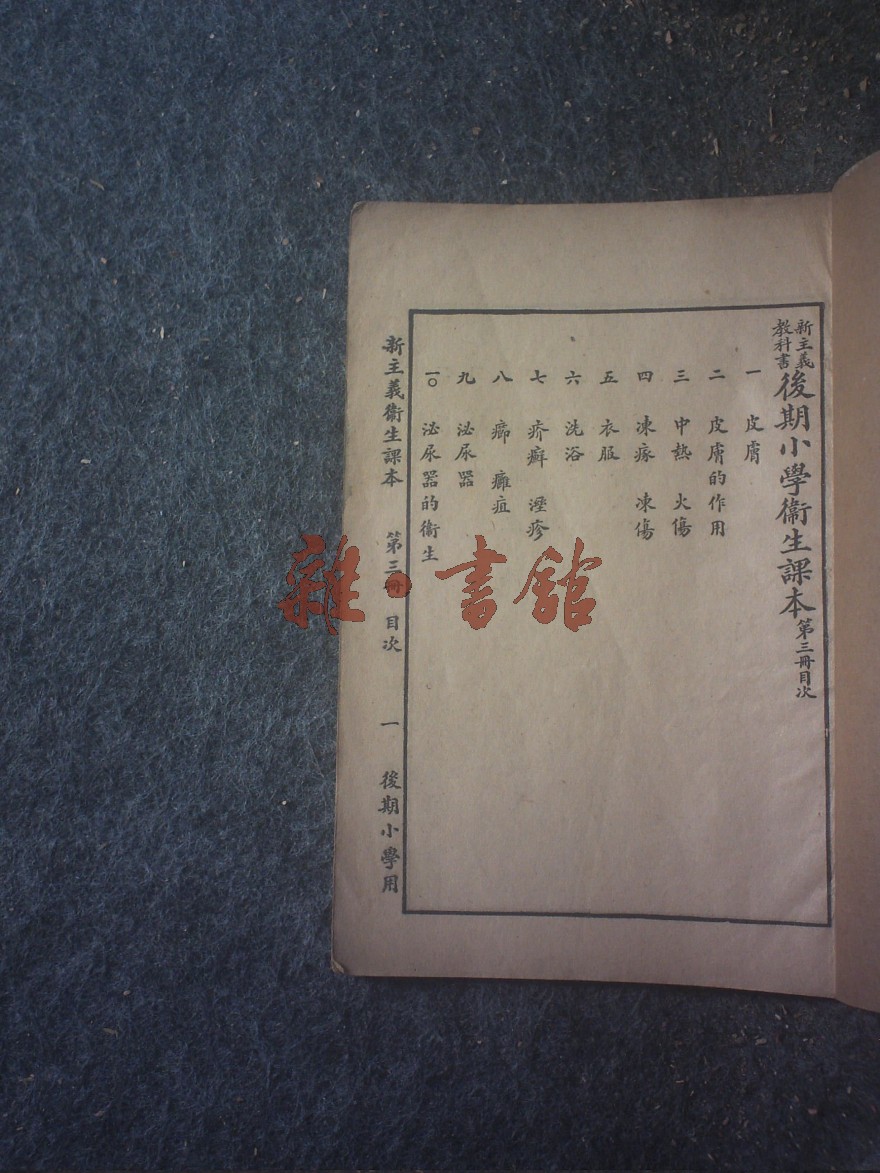 新主義教科書
後期小學衞生課本 第三冊目次
一 皮膚
二 皮膚的作用
三 中熱 火傷
四 凍瘃 凍傷
五 衣服
六 洗浴
七 疥癬 溼疹
八 癤 癰疽
九 泌尿器
一〇 泌尿器的衞生
新主義衞生課本 第三冊 目次 一 後期小學用
雜·書館